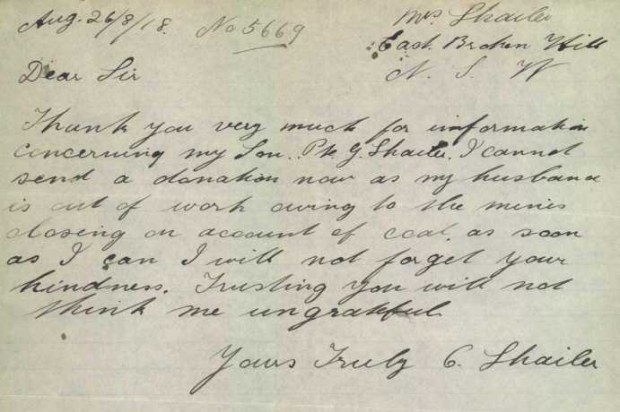 Aug. 26/8/18. No 5669
Mrs Shailer
East Broken Hill
N. S. W
Dear Sir
Thank you very much for information
concerning my Son. Pte G. Shailer. I cannot
send a donation now as my husband
is out of work owing to the mines
closing on account of coal. as soon
as I can I will not forget your
kindness. Trusting you will not
think me ungrateful
Yours Truly C. Shailer